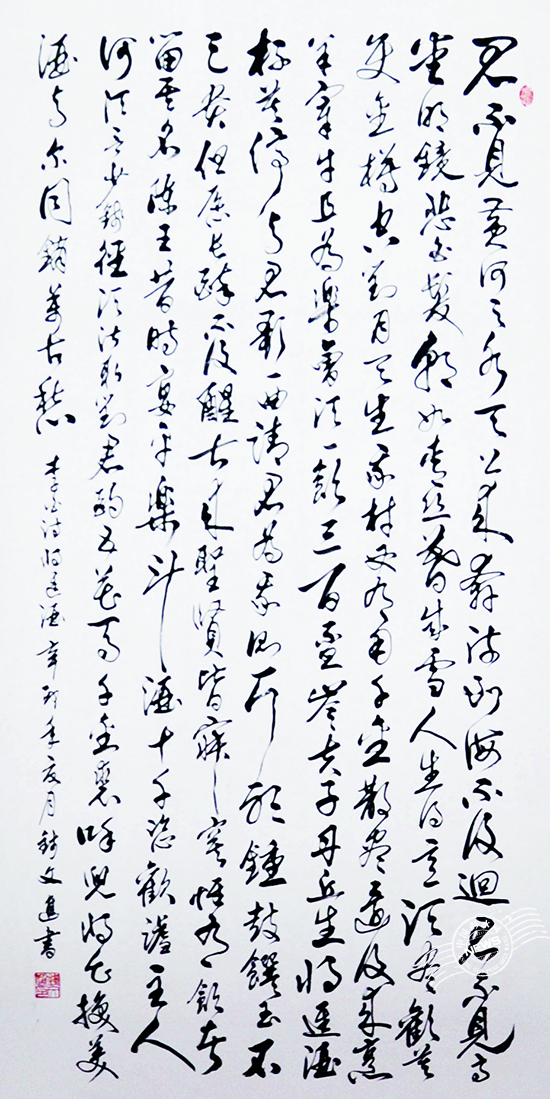 君不見黃河之水天上來奔流到海不復迴君不見高
堂明鏡悲白髮朝如青絲暮成雪人生得意須盡歡莫
使金樽空對月天生我材必有用千金散盡還復來烹
羊宰牛且為樂會須一飲三百盃岑夫子丹丘生將進酒
杯莫停與君歌一曲請君為我側耳聽鐘鼓饌玉不
足貴但願長醉不復醒古來聖賢皆寂寞惟有飲者
留其名陳王昔時宴平樂斗酒十千恣歡謔主人
何須言少錢徑須沽取對君酌五花馬千金裘呼兒將出換美
酒與爾同銷萬古愁
李白詩將進酒辛卯年夏月錢文進書